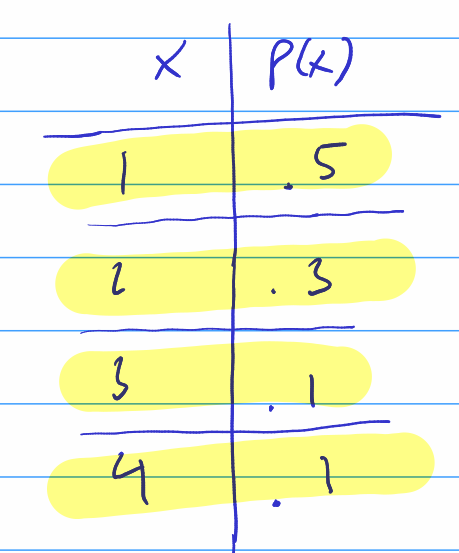 x P(x)
1 .5
2 .3
3 .1
4 .1